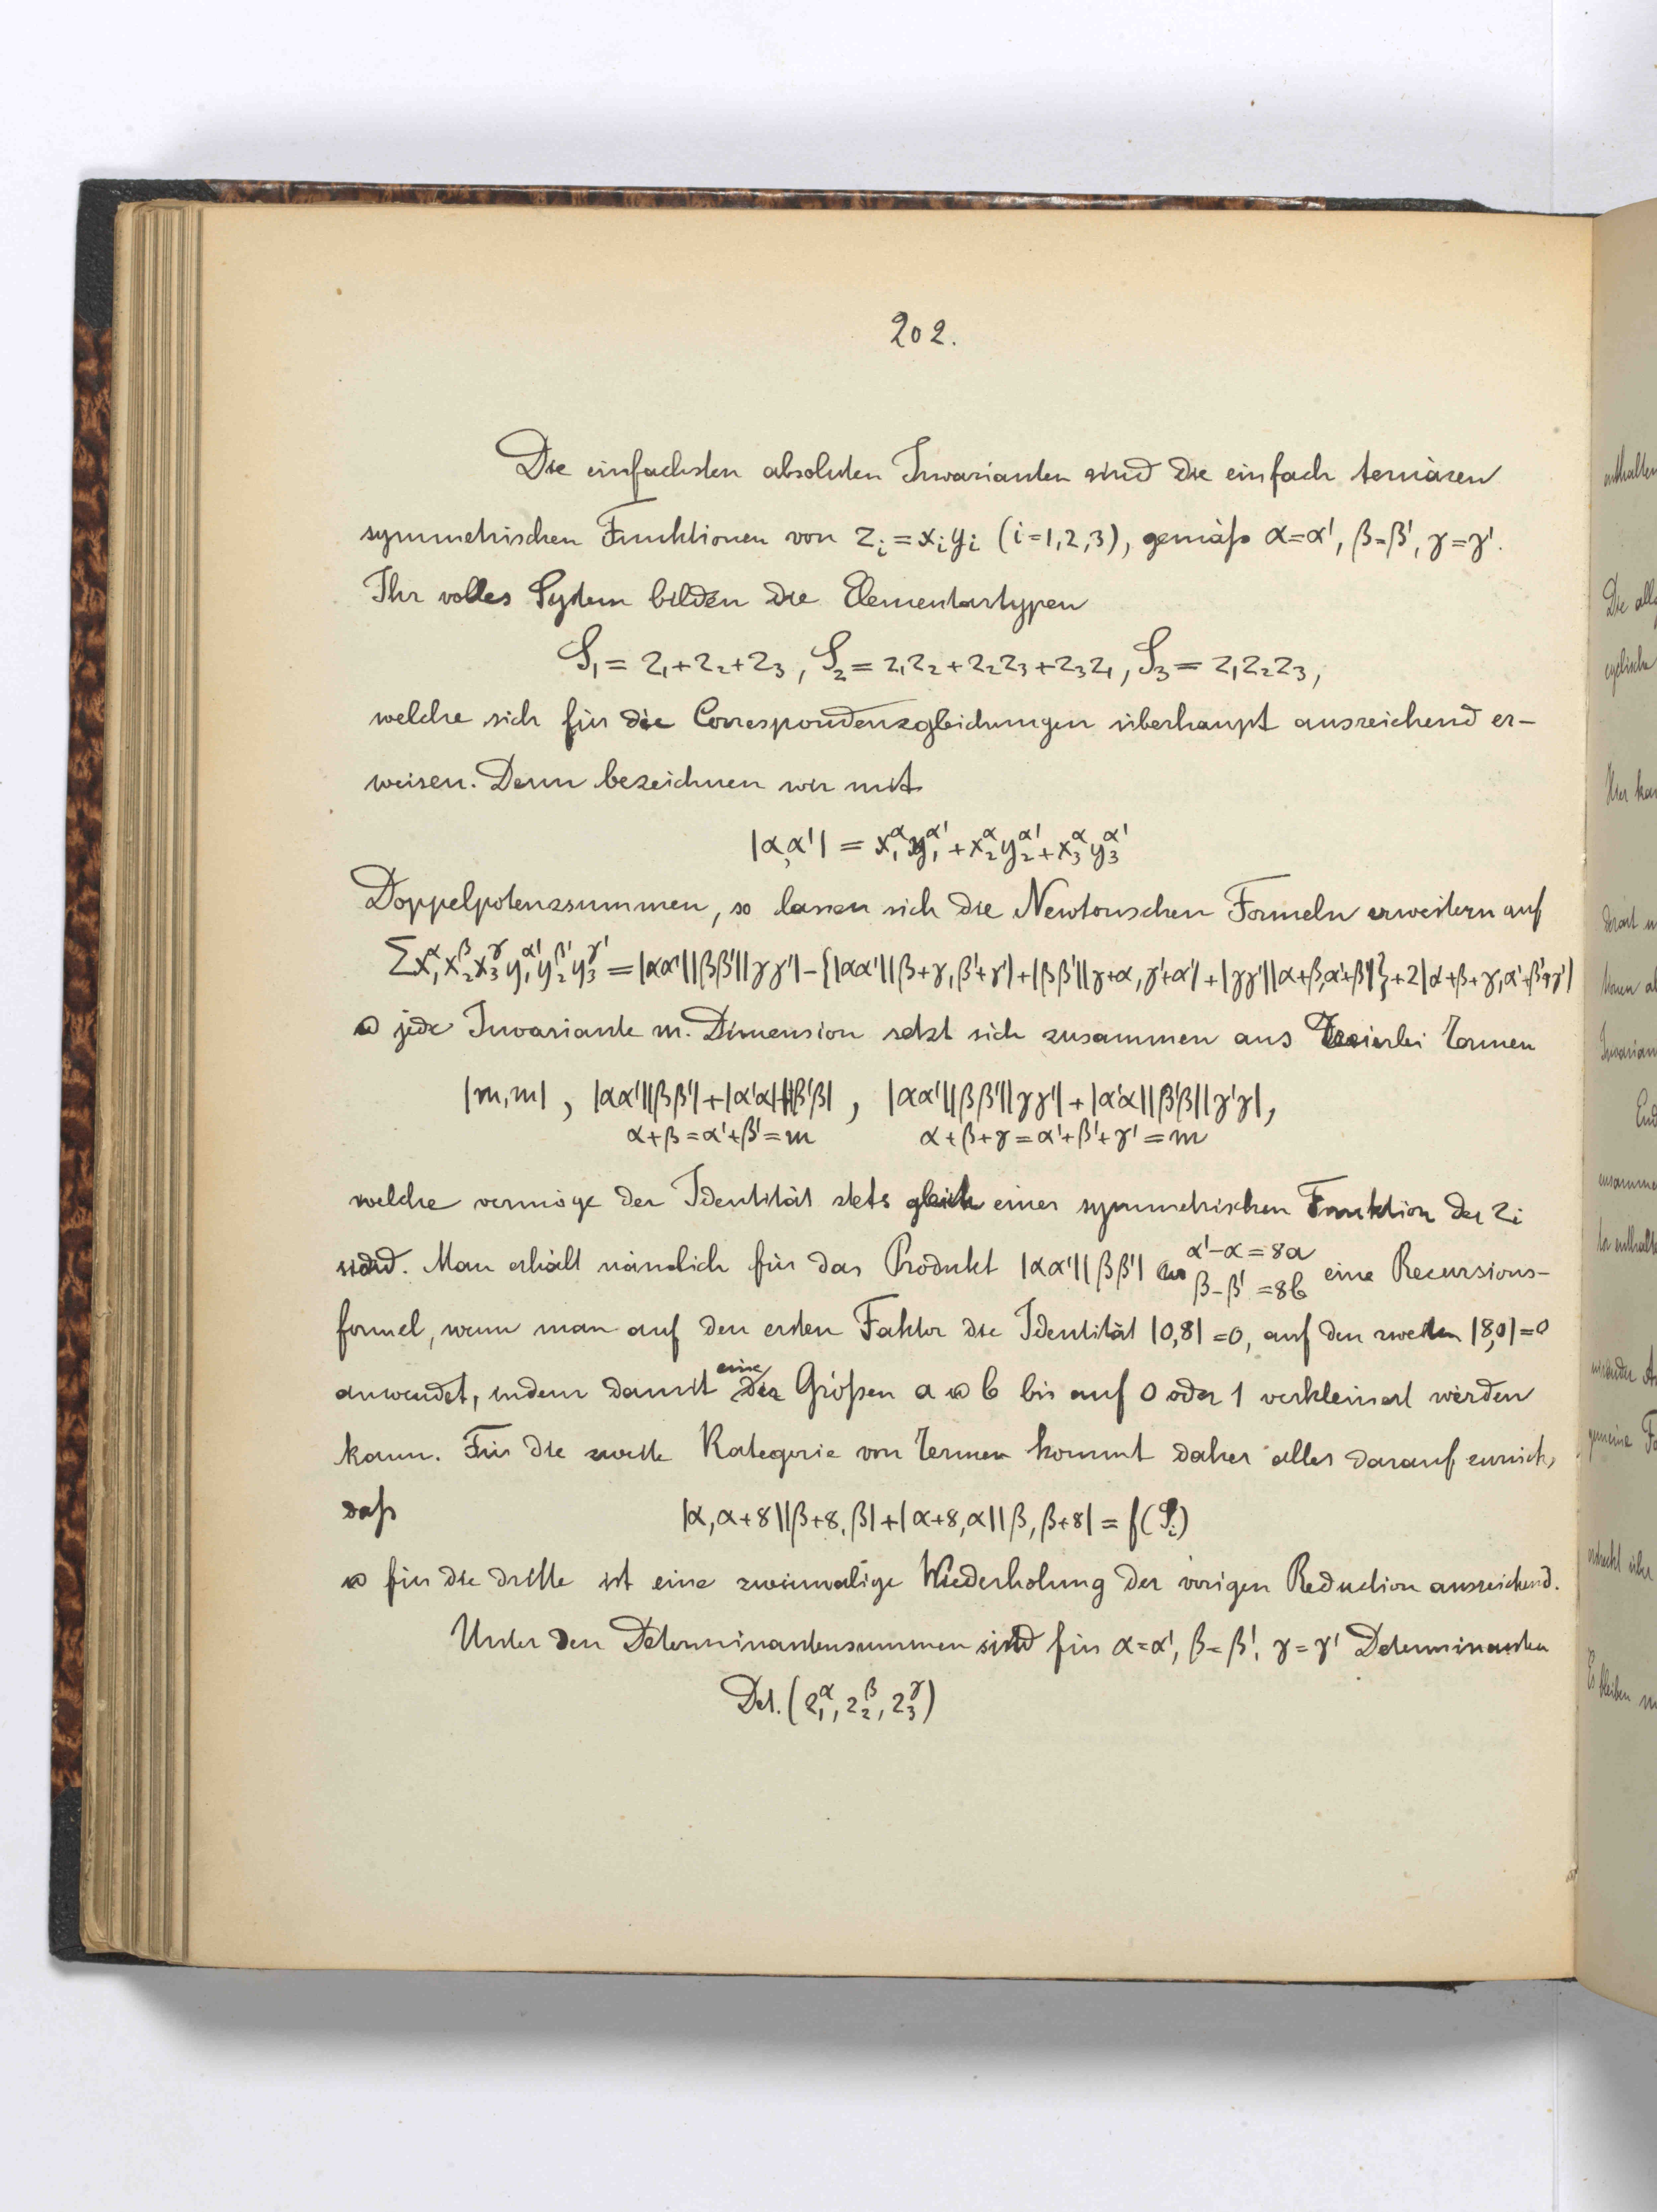 202.
Die einfachsten absoluten Invarianten sind die einfach ternären
symmetrischen Funktionen von z_i = x_i y_i (i=1,2,3), gemäß α=α', β=β', γ=γ'.
Ihr volles System bilden die Elementartypen
S₁ = z₁+z₂+z₃, S₂ = z₁z₂+z₂z₃+z₃z₁, S₃ = z₁z₂z₃,
welche sich für die Correspondenzgleichungen überhaupt ausreichend er-
weisen. Denn bezeichnen wir mit
|α,α'| = x₁^α y₁^α' + x₂^α y₂^α' + x₃^α y₃^α'
Doppelpotenzsummen, so lassen sich die Newtonschen Formeln erweitern auf
Σx₁^α x₂^β x₃^γ y₁^α' y₂^β' y₃^γ' = |αα'||ββ'||γγ'| - {|αα'||β+γ, β'+γ'| + |ββ'||γ+α, γ'+α'| + |γγ'||α+β, α'+β'|} + 2|α+β+γ, α'+β'+γ'|
u jede Invariante m. Dimension setzt sich zusammen aus dreierlei Termen
|m,m| , |αα'||ββ'| + |α'α||β'β| , |αα'||ββ'||γγ'| + |α'α||β'β||γ'γ|,
α+β=α'+β'=m α+β+γ=α'+β'+γ'=m
welche vermöge der Identität stets gleich einer symmetrischen Funktion der z_i
sind. Man erhält nämlich für das Produkt |αα'||ββ'| wo α'-α=8a β-β'=8b eine Recursions-
formel, wenn man auf den ersten Faktor die Identität |0,8|=0, auf den zweiten |8,0|=0
anwendet, indem damit eine der Größen a u b bis auf 0 oder 1 verkleinert werden
kann. Für die zweite Kategorie von Termen kommt daher alles darauf zurück,
daß |α, α+8||β+8, β| + |α+8, α||β, β+8| = f(S_i)
u für die dritte ist eine zweimalige Wiederholung der vorigen Reduction ausreichend.
Unter den Determinantensummen sind für α=α', β=β', γ=γ' Determinanten
Det. (z₁^α, z₂^β, z₃^γ)